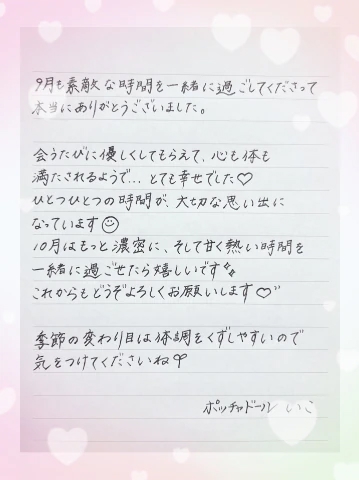 9月も素敵な時間を一緒に過ごしてくださって
本当にありがとうございました。
会うたびに優しくしてもらえて、心も体も
満たされるようで…とても幸せでした♡
ひとつひとつの時間が、大切な思い出に
なっています☺
10月はもっと濃密に、そして甘く熱い時間を
一緒に過ごせたら嬉しいです
これからもどうぞよろしくお願いします♡
季節の変わり目は体調をくずしやすいので
気をつけてくださいね
ポッチャドール いこ